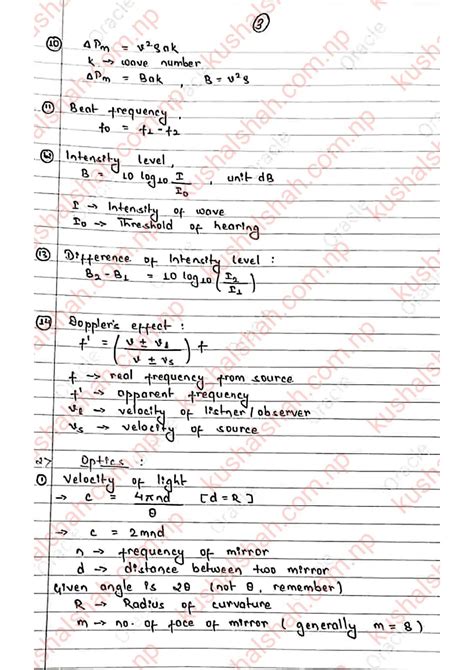 3
⑩ ΔPm = v²ρak
k → wave number
ΔPm = Bak , B = v²ρ
⑪ Beat frequency,
f0 = f1 - f2
⑫ Intensity level,
B = 10 log10 I/I0 , unit dB
I → Intensity of wave
I0 → Threshold of hearing
⑬ Difference of Intensity level :
B2 - B1 = 10 log10 (I2/I1)
⑭ Doppler's effect :
f' = (v ± vl / v ± vs) f
f → real frequency from source
f' → apparent frequency
vl → velocity of listner/observer
vs → velocity of source
Optics :
① Velocity of light
→ c = 4πnd/θ [d=R]
→ c = 2mnd
n → frequency of mirror
d → distance between two mirror
Given angle is 2θ (not θ, remember)
R → Radius of curvature
m → no. of face of mirror ( generally m = 8 )
kushalshah.com.np
Oracle